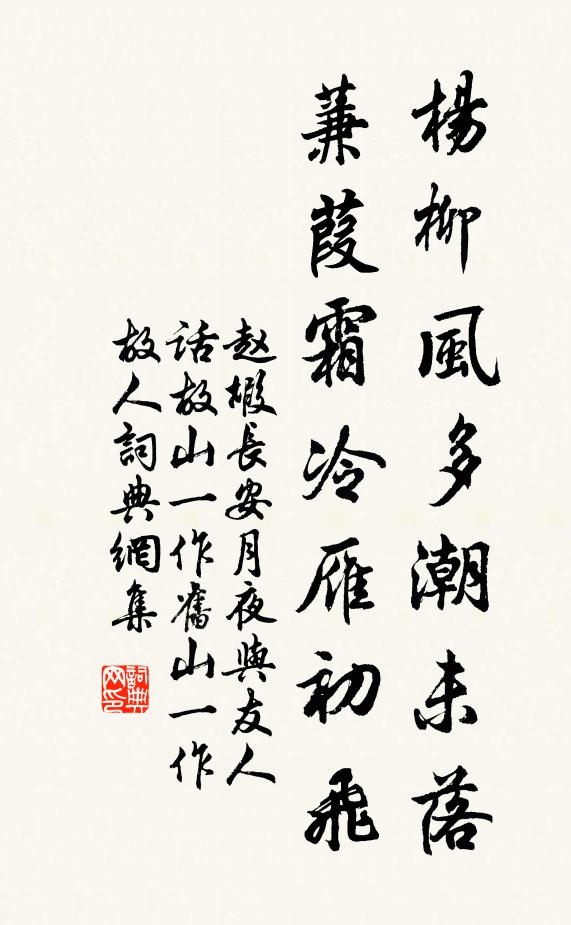 楊柳風多潮未落
蒹葭霜冷雁初飛
赵嘏長安月夜與友人
話故山一作舊山一作
故人詞典網集
詞典
网印